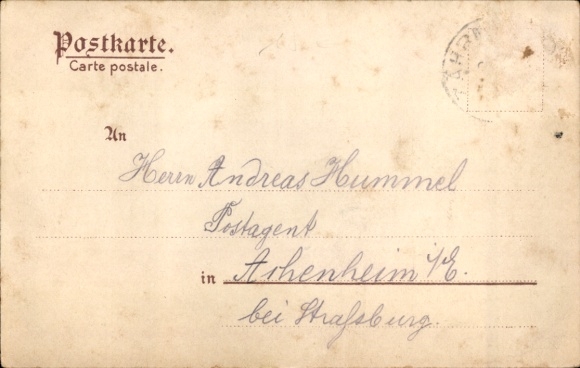 Postkarte.
Carte postale.
An
Herrn Andreas Hummel
Postagent
in Achenheim i/E.
bei Straßburg.